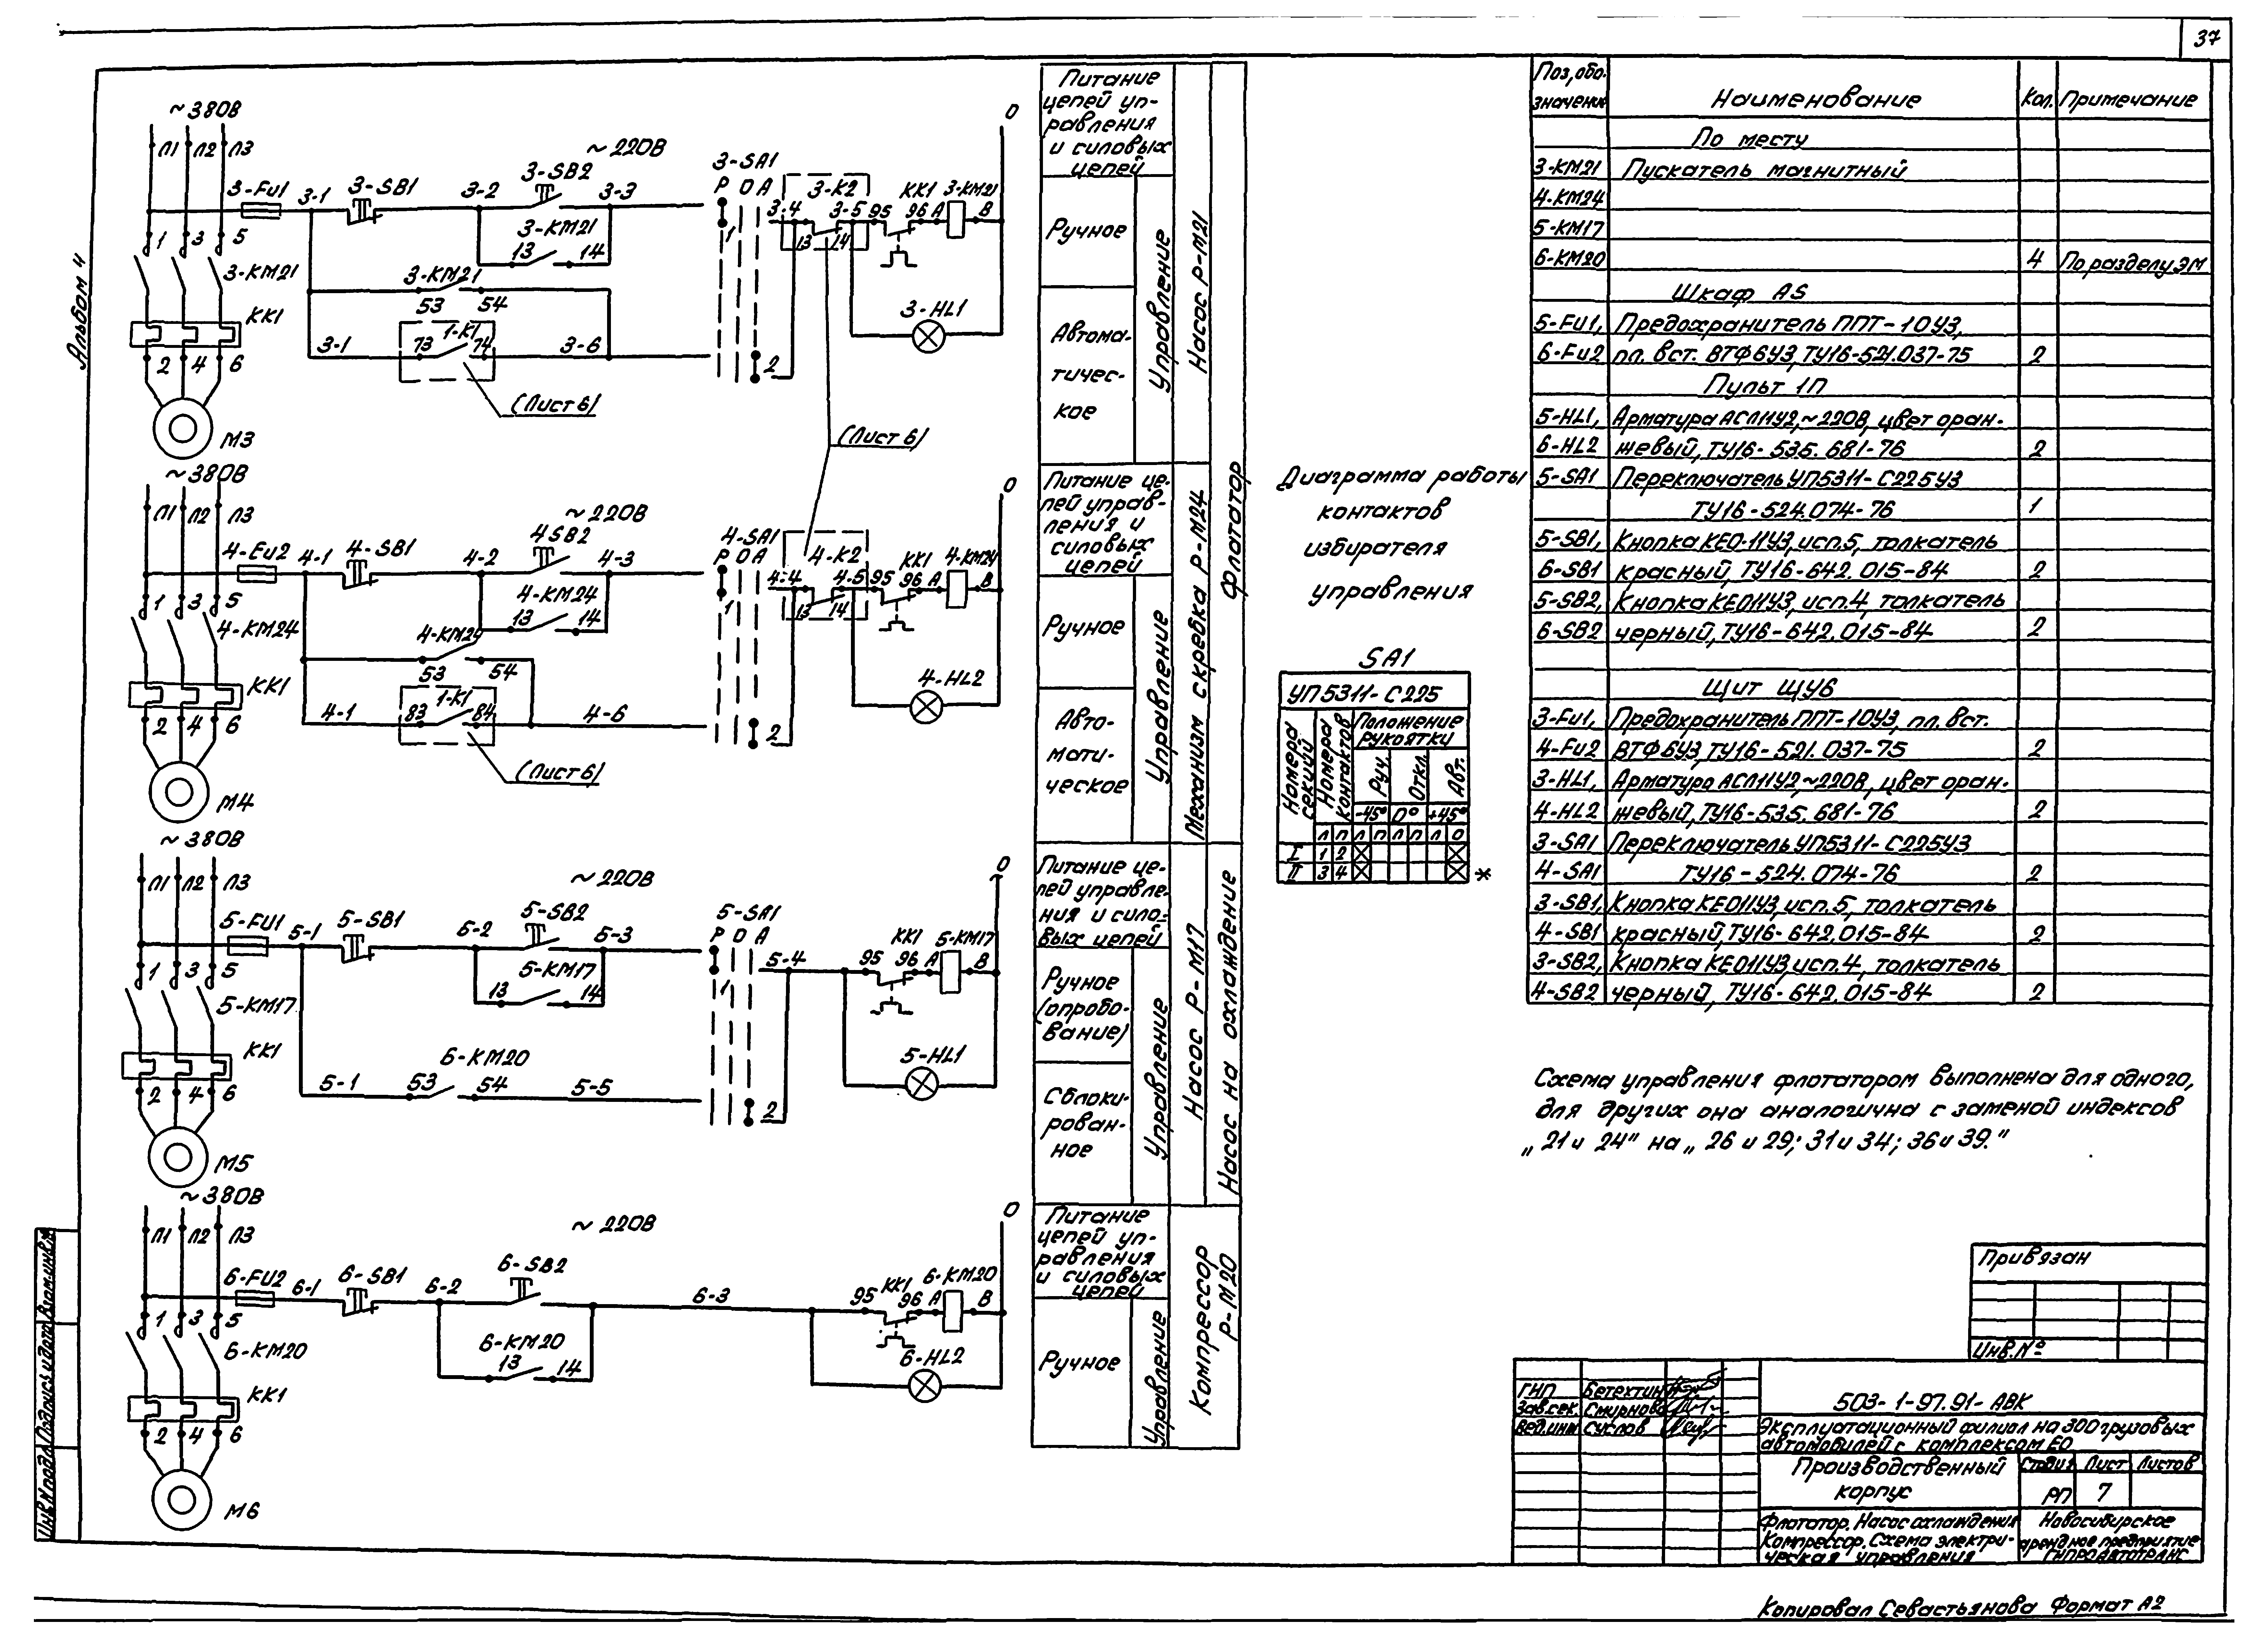 37
Альбом 4
~380В
Л1 Л2 Л3
3-FU1
3-1
3-SB1
3-2
~220В
3-SB2
3-3
3-KM21
13 14
3-KM21
53 54
1-K1
73 74
3-1
3-6
(Лист 6)
3-SA1
Р О А
1
2
3-4
3-K2
13 14
3-5
95
KK1
96 А
3-KM21
В
О
3-HL1
1 3 5
3-KM21
KK1
2 4 6
М3
(Лист 6)
~380В
Л1 Л2 Л3
4-FU2
4-1
4-SB1
4-2
~220В
4-SB2
4-3
4-KM24
13 14
4-KM24
53 54
1-K1
83 84
4-1
4-6
(Лист 6)
4-SA1
Р О А
1
2
4-4
4-K2
13 14
4-5
95
KK1
96 А
4-KM24
В
О
4-HL2
1 3 5
4-KM24
KK1
2 4 6
М4
~380В
Л1 Л2 Л3
5-FU1
5-1
5-SB1
5-2
~220В
5-SB2
5-3
5-KM17
13 14
6-KM20
5-1
53 54
5-5
5-SA1
Р О А
1
2
5-4
95
KK1
96 А
5-KM17
В
О
5-HL1
1 3 5
5-KM17
KK1
2 4 6
М5
~380В
Л1 Л2 Л3
6-FU2
6-1
6-SB1
6-2
~220В
6-SB2
6-KM20
13 14
6-3
95
KK1
96 А
6-KM20
В
О
6-HL2
1 3 5
6-KM20
KK1
2 4 6
М6
Питание
цепей уп-
равления
и силовых
цепей
Ручное
Автома-
тичес-
кое
Управление
Насос Р-М21
Питание це-
пей управ-
ления и
силовых
цепей
Ручное
Авто-
мати-
ческое
Управление
Механизм скребка Р-М24
Флататор
Питание це-
пей управле-
ния и сило-
вых цепей
Ручное
(опробо-
вание)
Сблоки-
рован-
ное
Управление
Насос Р-М17
Насос на охлаждение
Питание
цепей уп-
равления
и силовых
цепей
Ручное
Управление
Компрессор
Р-М20
Диаграмма работы
контактов
избирателя
управления
SA1
УП5311-С225
Номера секций
Номера контактов
Положение
рукоятки
Руч. Откл. Авт.
-45° 0° +45°
Л П Л П Л П Л О
I 1 2
II 3 4 *
Поз, обо-
значение Наименование Кол. Примечание
По месту
3-KM21 Пускатель магнитный
4-KM24
5-KM17
6-KM20 4 По разделу ЭМ
Шкаф AS
5-FU1, Предохранитель ППТ-10У3,
6-FU2 пл. вст. ВТФ6У3, ТУ16-521.037-75 2
Пульт 1П
5-HL1, Арматура АСЛ11У2,~220В, цвет оран-
6-HL2 жевый, ТУ16-535.681-76 2
5-SA1 Переключатель УП5311-С225У3
ТУ16-524.074-76 1
5-SB1, Кнопка КЕО-11У3, исп.5, толкатель
6-SB1 красный, ТУ16-642.015-84 2
5-SB2, Кнопка КЕ011У3, исп.4, толкатель
6-SB2 черный, ТУ16-642.015-84 2
Щит ЩУ6
3-FU1, Предохранитель ППТ-10У3, пл. вст.
4-FU2 ВТФ6У3, ТУ16-521.037-75 2
3-HL1, Арматура АСЛ11У2,~220В, цвет оран-
4-HL2 жевый, ТУ16-535.681-76 2
3-SA1 Переключатель УП5311-С225У3
4-SA1 ТУ16-524.074-76 2
3-SB1, Кнопка КЕ011У3, исп.5, толкатель
4-SB1 красный, ТУ16-642.015-84 2
3-SB2, Кнопка КЕ011У3, исп.4, толкатель
4-SB2 черный, ТУ16-642.015-84 2
Схема управления флотатором выполнена для одного,
для других она аналогична с заменой индексов
„21 и 24" на „26 и 29; 31 и 34; 36 и 39."
Привязан
Инв. №
ГИП Бетехтин
Зав.сек. Смирнова
Вед.инж Суслов
503-1-97.91-АВК
Эксплуатационный филиал на 300 грузовых
автомобилей с комплексом ЕО
Производственный
корпус
Стадия Лист Листов
РП 7
Флотатор. Насос охлаждения
Компрессор. Схема электри-
ческая управления
Новосибирское
арендное предприятие
ГИПРОАВТОТРАНС
Инв.№подл. Подпись и дата Взам.инв.№
Копировал Севастьянова Формат А2